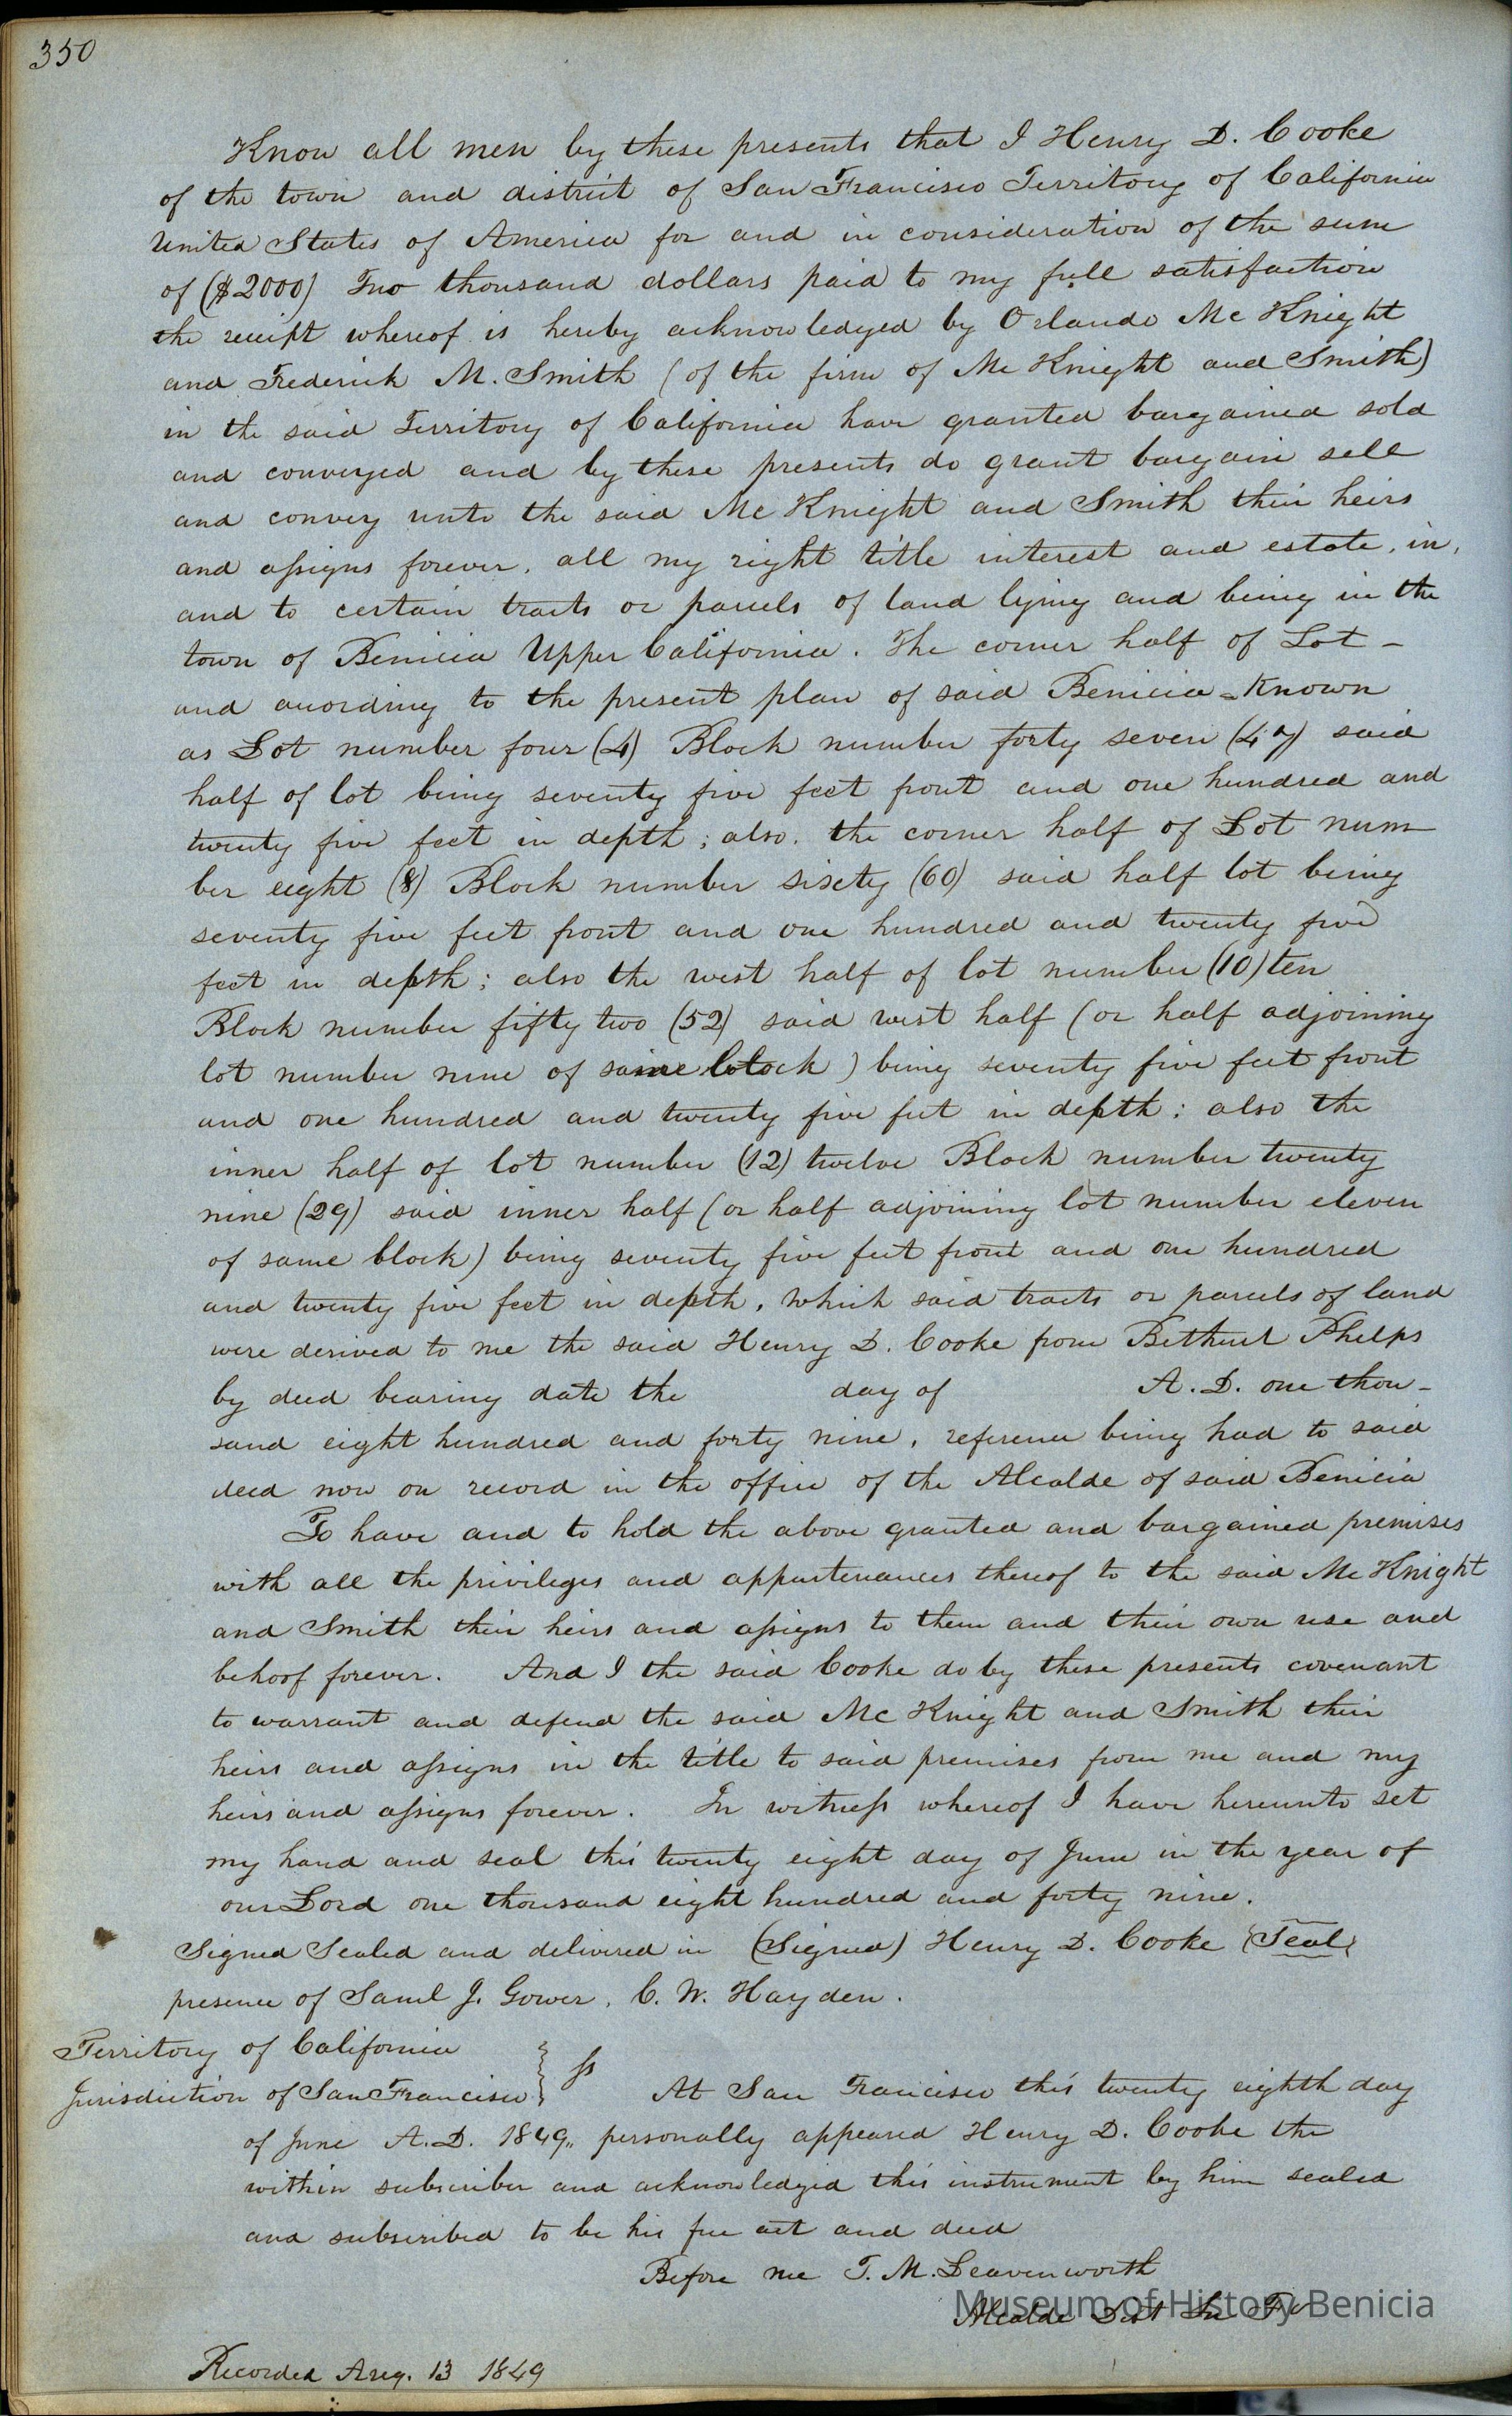 350
Know all men by these presents that I Henry D. Cooke
of the town and district of San Francisco Territory of California
United States of America for and in consideration of the sum
of ($2000) Two thousand dollars paid to my full satisfaction
the receipt whereof is hereby acknowledged by Orlando Mc Knight
and Frederick M. Smith (of the firm of Mc Knight and Smith)
in the said Territory of California have granted bargained sold
and conveyed and by these presents do grant bargain sell
and convey unto the said Mc Knight and Smith their heirs
and assigns forever, all my right title interest and estate, in,
and to certain tracts or parcels of land lying and being in the
town of Benicia Upper California. The corner half of Lot -
and according to the present plan of said Benicia - Known
as Lot number four (4) Block number forty seven (47) said
half of lot being seventy five feet front and one hundred and
twenty five feet in depth; also, the corner half of Lot num
ber eight (8) Block number sixty (60) said half lot being
seventy five feet front and one hundred and twenty five
feet in depth; also the west half of lot number (10) ten
Block number fifty two (52) said west half (or half adjoining
lot number nine of same block) being seventy five feet front
and one hundred and twenty five feet in depth; also the
inner half of lot number (12) twelve Block number twenty
nine (29) said inner half (or half adjoining lot number eleven
of same block) being seventy five feet front and one hundred
and twenty five feet in depth, which said tracts or parcels of land
were derived to me the said Henry D. Cooke from Bethuel Phelps
by deed bearing date the day of A. D. one thou-
sand eight hundred and forty nine, reference being had to said
deed now on record in the office of the Alcalde of said Benicia
To have and to hold the above granted and bargained premises
with all the privileges and appurtenances thereof to the said Mc Knight
and Smith their heirs and assigns to them and their own use and
behoof forever. And I the said Cooke do by these presents covenant
to warrant and defend the said Mc Knight and Smith their
heirs and assigns in the title to said premises from me and my
heirs and assigns forever. In witness whereof I have hereunto set
my hand and seal this twenty eight day of June in the year of
our Lord one thousand eight hundred and forty nine.
Signed Sealed and delivered in (Signed) Henry D. Cooke {Seal}
presence of Saml J. Gower, C. W. Hayden.
Territory of California
Jurisdiction of San Francisco } ss At San Francisco this twenty eighth day
of June A.D. 1849,, personally appeared Henry D. Cooke the
within subscriber and acknowledged this instrument by him sealed
and subscribed to be his free act and deed
Before me T. M. Leavenworth
Alcalde Dist Sn Fo
Museum of History Benicia
Recorded Aug. 13 1849